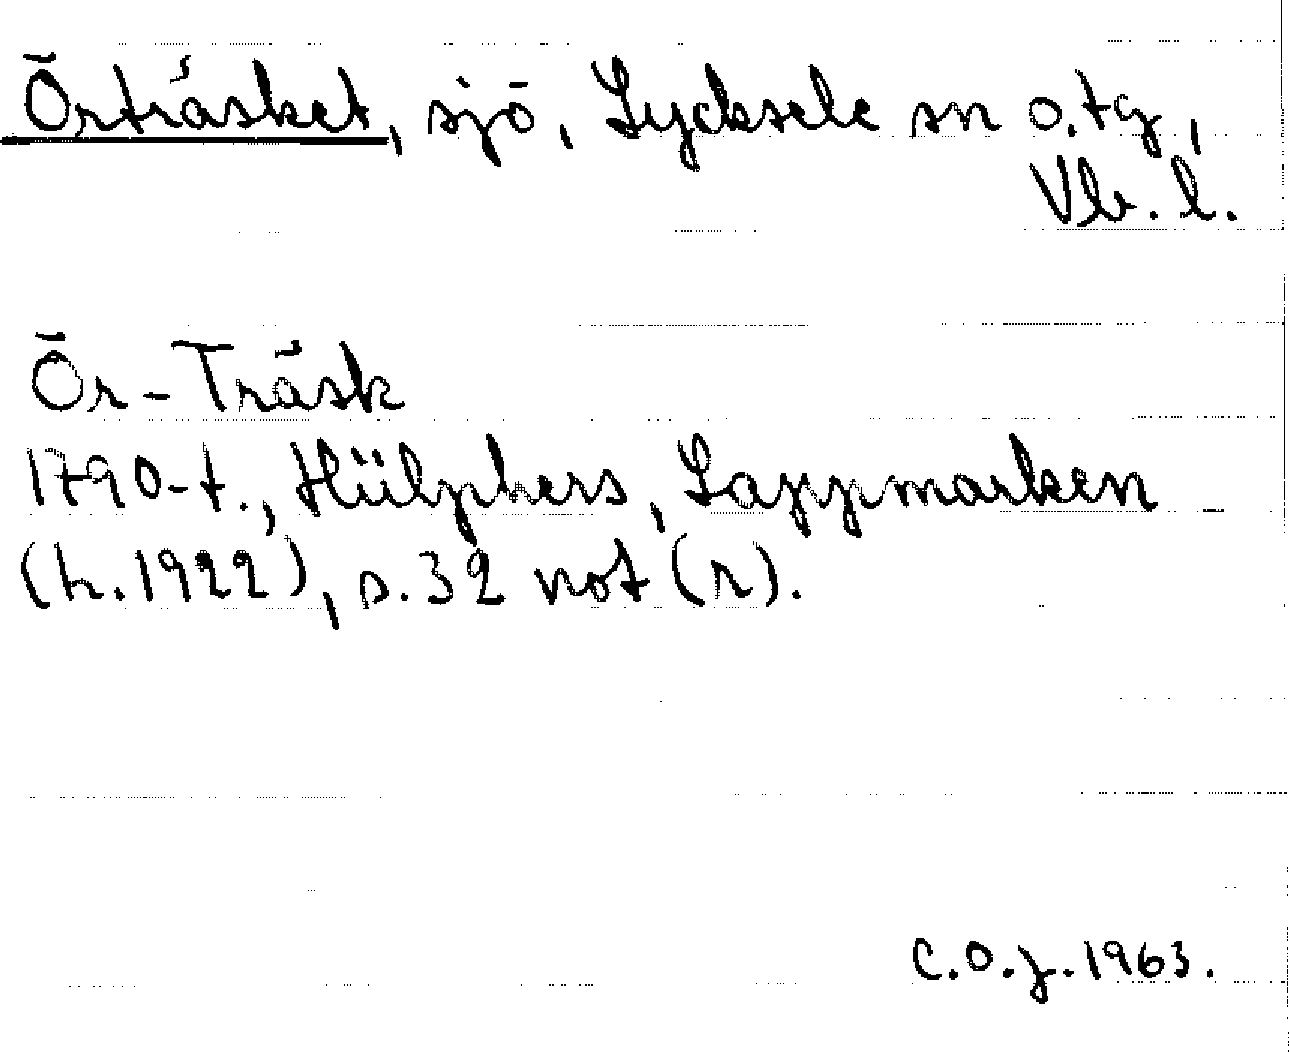 Örträsket, sjö, Lycksele sn o.tg,
Vb. l.
Ör-Träsk
1790-t., Hülphers, Lappmarken
(h.1922), s.32 not (r).
C.O.J.1963.